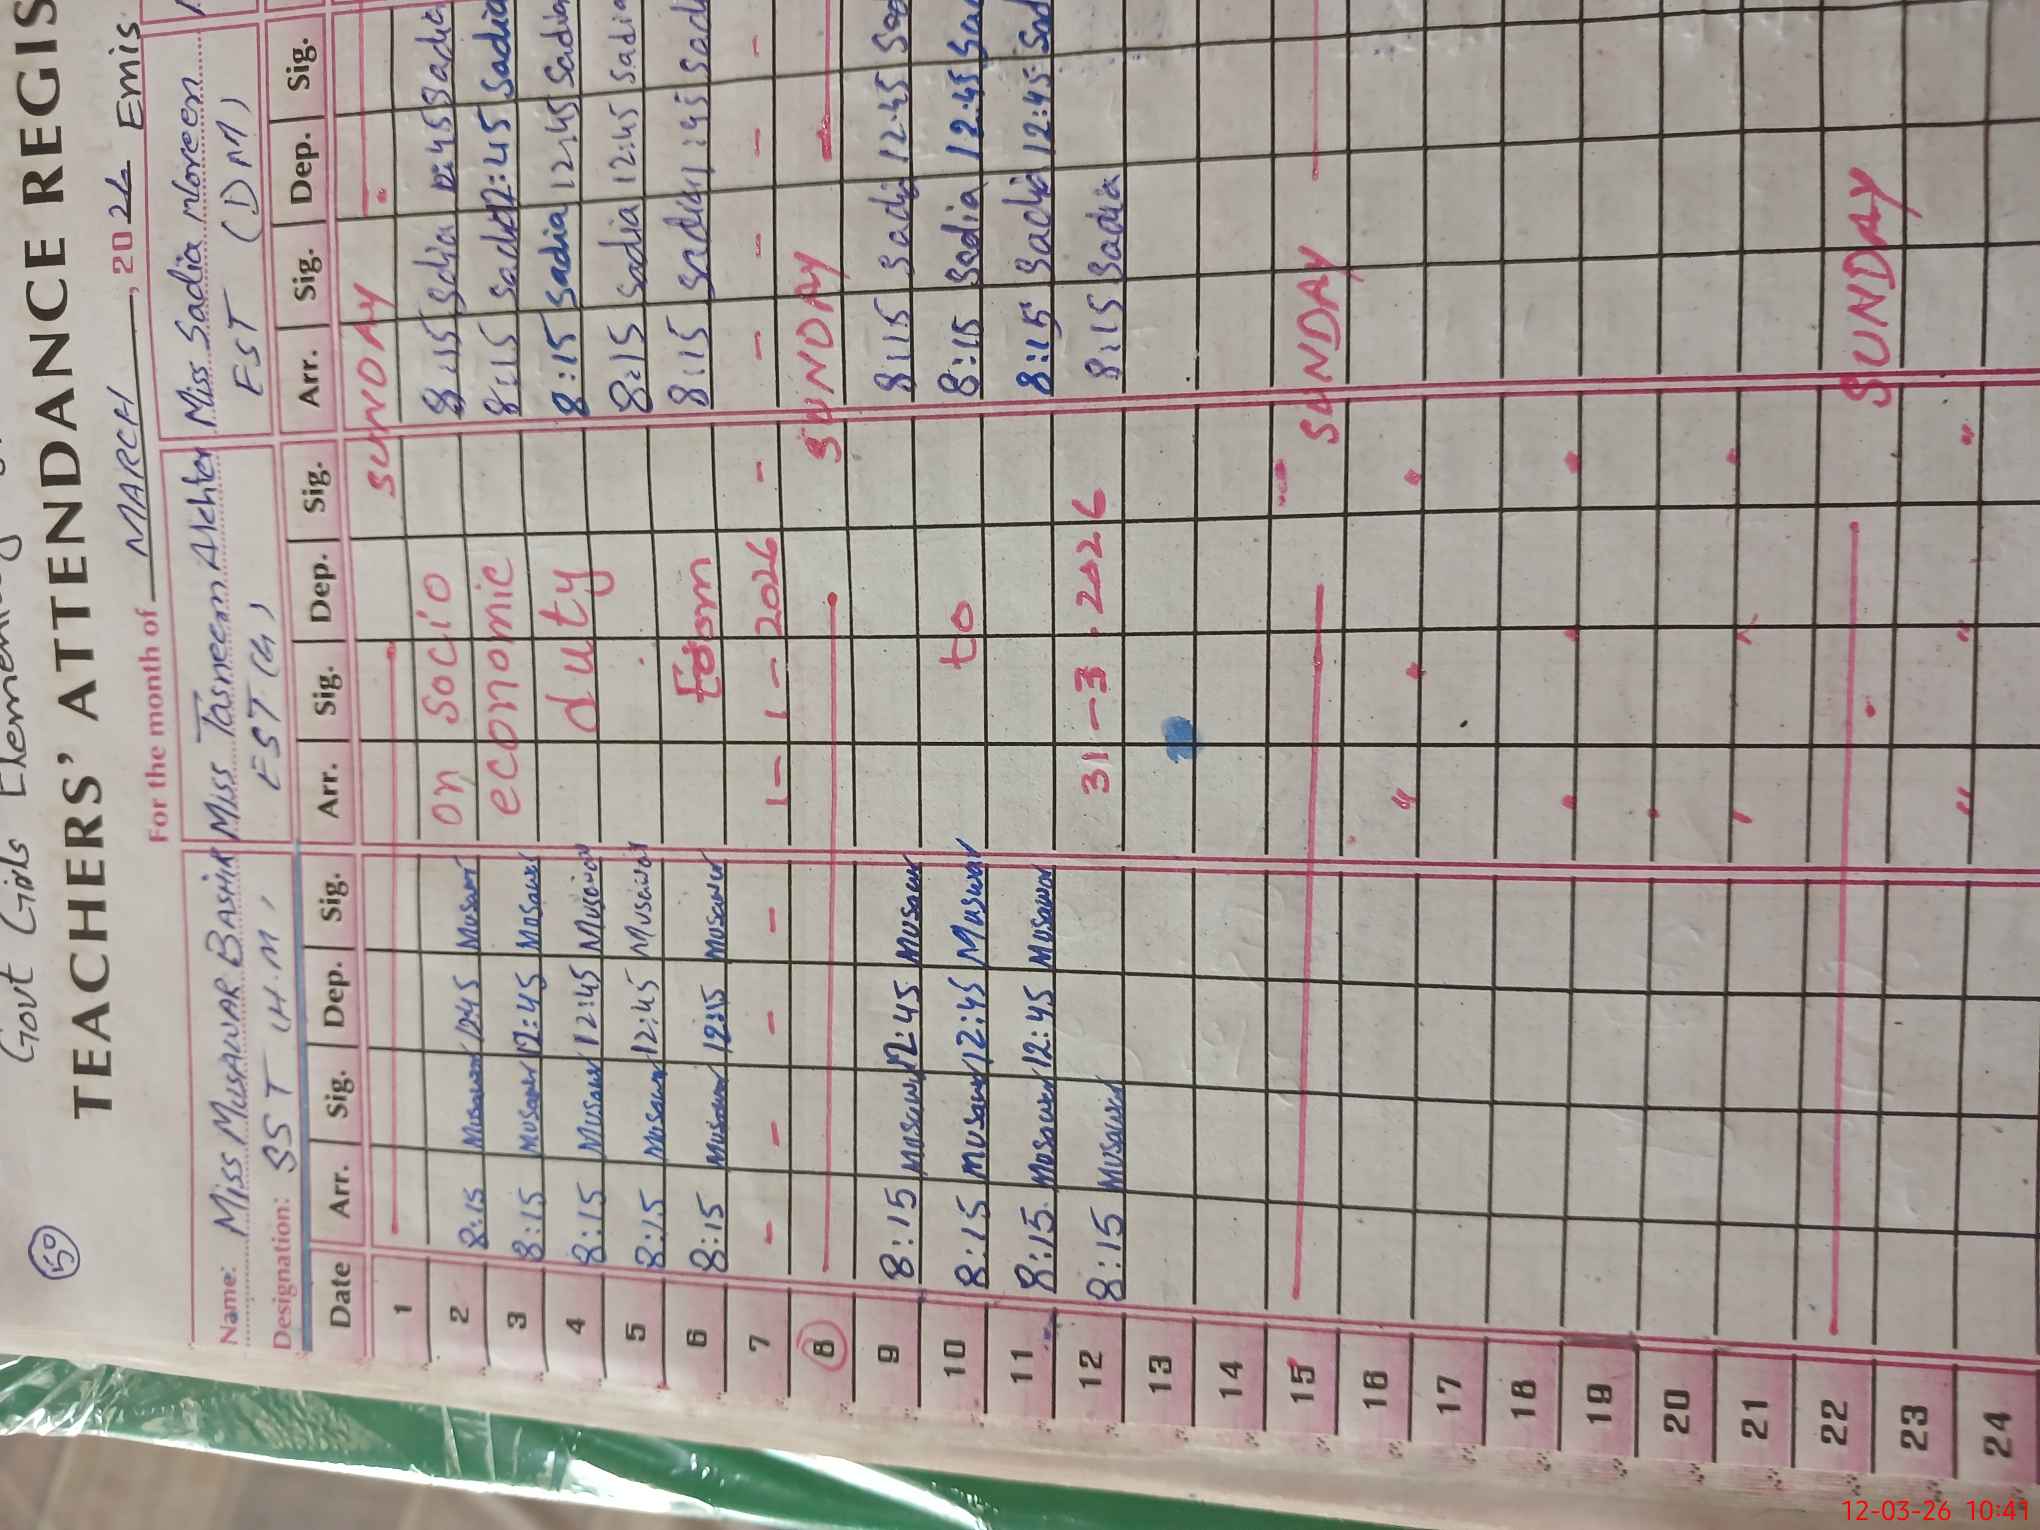 Govt Girls Elementary
50
TEACHERS' ATTENDANCE REGIS
For the month of MARCH, 2026 Emis
Name: Miss Musawar Bashir Miss Tasneem Akhter Miss Sadia Noreen
Designation: SST (H.M) EST (G) EST (DM)
Date Arr. Sig. Dep. Sig. Arr. Sig. Dep. Sig. Arr. Sig. Dep. Sig.
1 SUNDAY
2 8:15 Musawar 12:45 Musawar on socio 8:15 Sadia 12:45 Sadia
3 8:15 Musawar 12:45 Musawar economic 8:15 Sadia 12:45 Sadia
4 8:15 Musawar 12:45 Musawar duty 8:15 Sadia 12:45 Sadia
5 8:15 Musawar 12:45 Musawar 8:15 Sadia 12:45 Sadia
6 8:15 Musawar Musawar from 8:15 Sadia Sadi
7 - - - - 1-1-2026 - - - - -
8 SUNDAY
9 8:15 Musawar 12:45 Musawar 8:15 Sadia 12:45 Sad
10 8:15 Musawar 12:45 Musawar to 8:15 Sadia 12:45 Sad
11 8:15 Musawar 12:45 Musawar 8:15 Sadia 12:45 Sad
12 8:15 Musawar 31-3-2026 8:15 Sadia
13
14
15 SUNDAY
16 " " "
17
18 " " "
19
20
21
22 SUNDAY
23
24 " " "
12-03-26 10:41